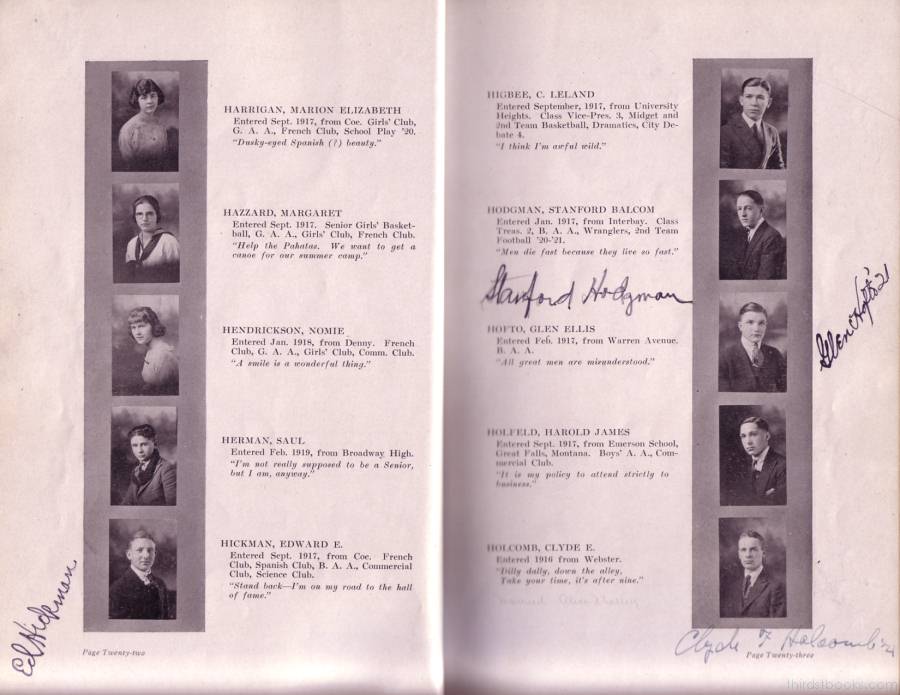 HARRIGAN, MARION ELIZABETH
Entered Sept. 1917, from Coe. Girls' Club,
G. A. A., French Club, School Play '20.
"Dusky-eyed Spanish (?) beauty."
HAZZARD, MARGARET
Entered Sept. 1917. Senior Girls' Basket-
ball, G. A. A., Girls' Club, French Club.
"Help the Pahatas. We want to get a
canoe for our summer camp."
HENDRICKSON, NOMIE
Entered Jan. 1918, from Denny. French
Club, G. A. A., Girls' Club, Comm. Club.
"A smile is a wonderful thing."
HERMAN, SAUL
Entered Feb. 1919, from Broadway High.
"I'm not really supposed to be a Senior,
but I am, anyway."
HICKMAN, EDWARD E.
Entered Sept. 1917, from Coe. French
Club, Spanish Club, B. A. A., Commercial
Club, Science Club.
"Stand back—I'm on my road to the hall
of fame."
Ed Hickman
Page Twenty-two
HIGBEE, C. LELAND
Entered September, 1917, from University
Heights. Class Vice-Pres. 3, Midget and
2nd Team Basketball, Dramatics, City De-
bate 4.
"I think I'm awful wild."
HODGMAN, STANFORD BALCOM
Entered Jan. 1917, from Interbay. Class
Treas. 2, B. A. A., Wranglers, 2nd Team
Football '20-'21.
"Men die fast because they live so fast."
Stanford Hodgman
HOFTO, GLEN ELLIS
Entered Feb. 1917, from Warren Avenue.
B. A. A.
"All great men are misunderstood."
Glen Hofto '21
HOLFELD, HAROLD JAMES
Entered Sept. 1917, from Emerson School,
Great Falls, Montana. Boys' A. A., Com-
mercial Club.
"It is my policy to attend strictly to
business."
HOLCOMB, CLYDE E.
Entered 1916 from Webster.
"Dilly dally, down the alley,
Take your time, it's after nine."
Clyde F Holcomb
Page Twenty-three
thirdstbooks.com